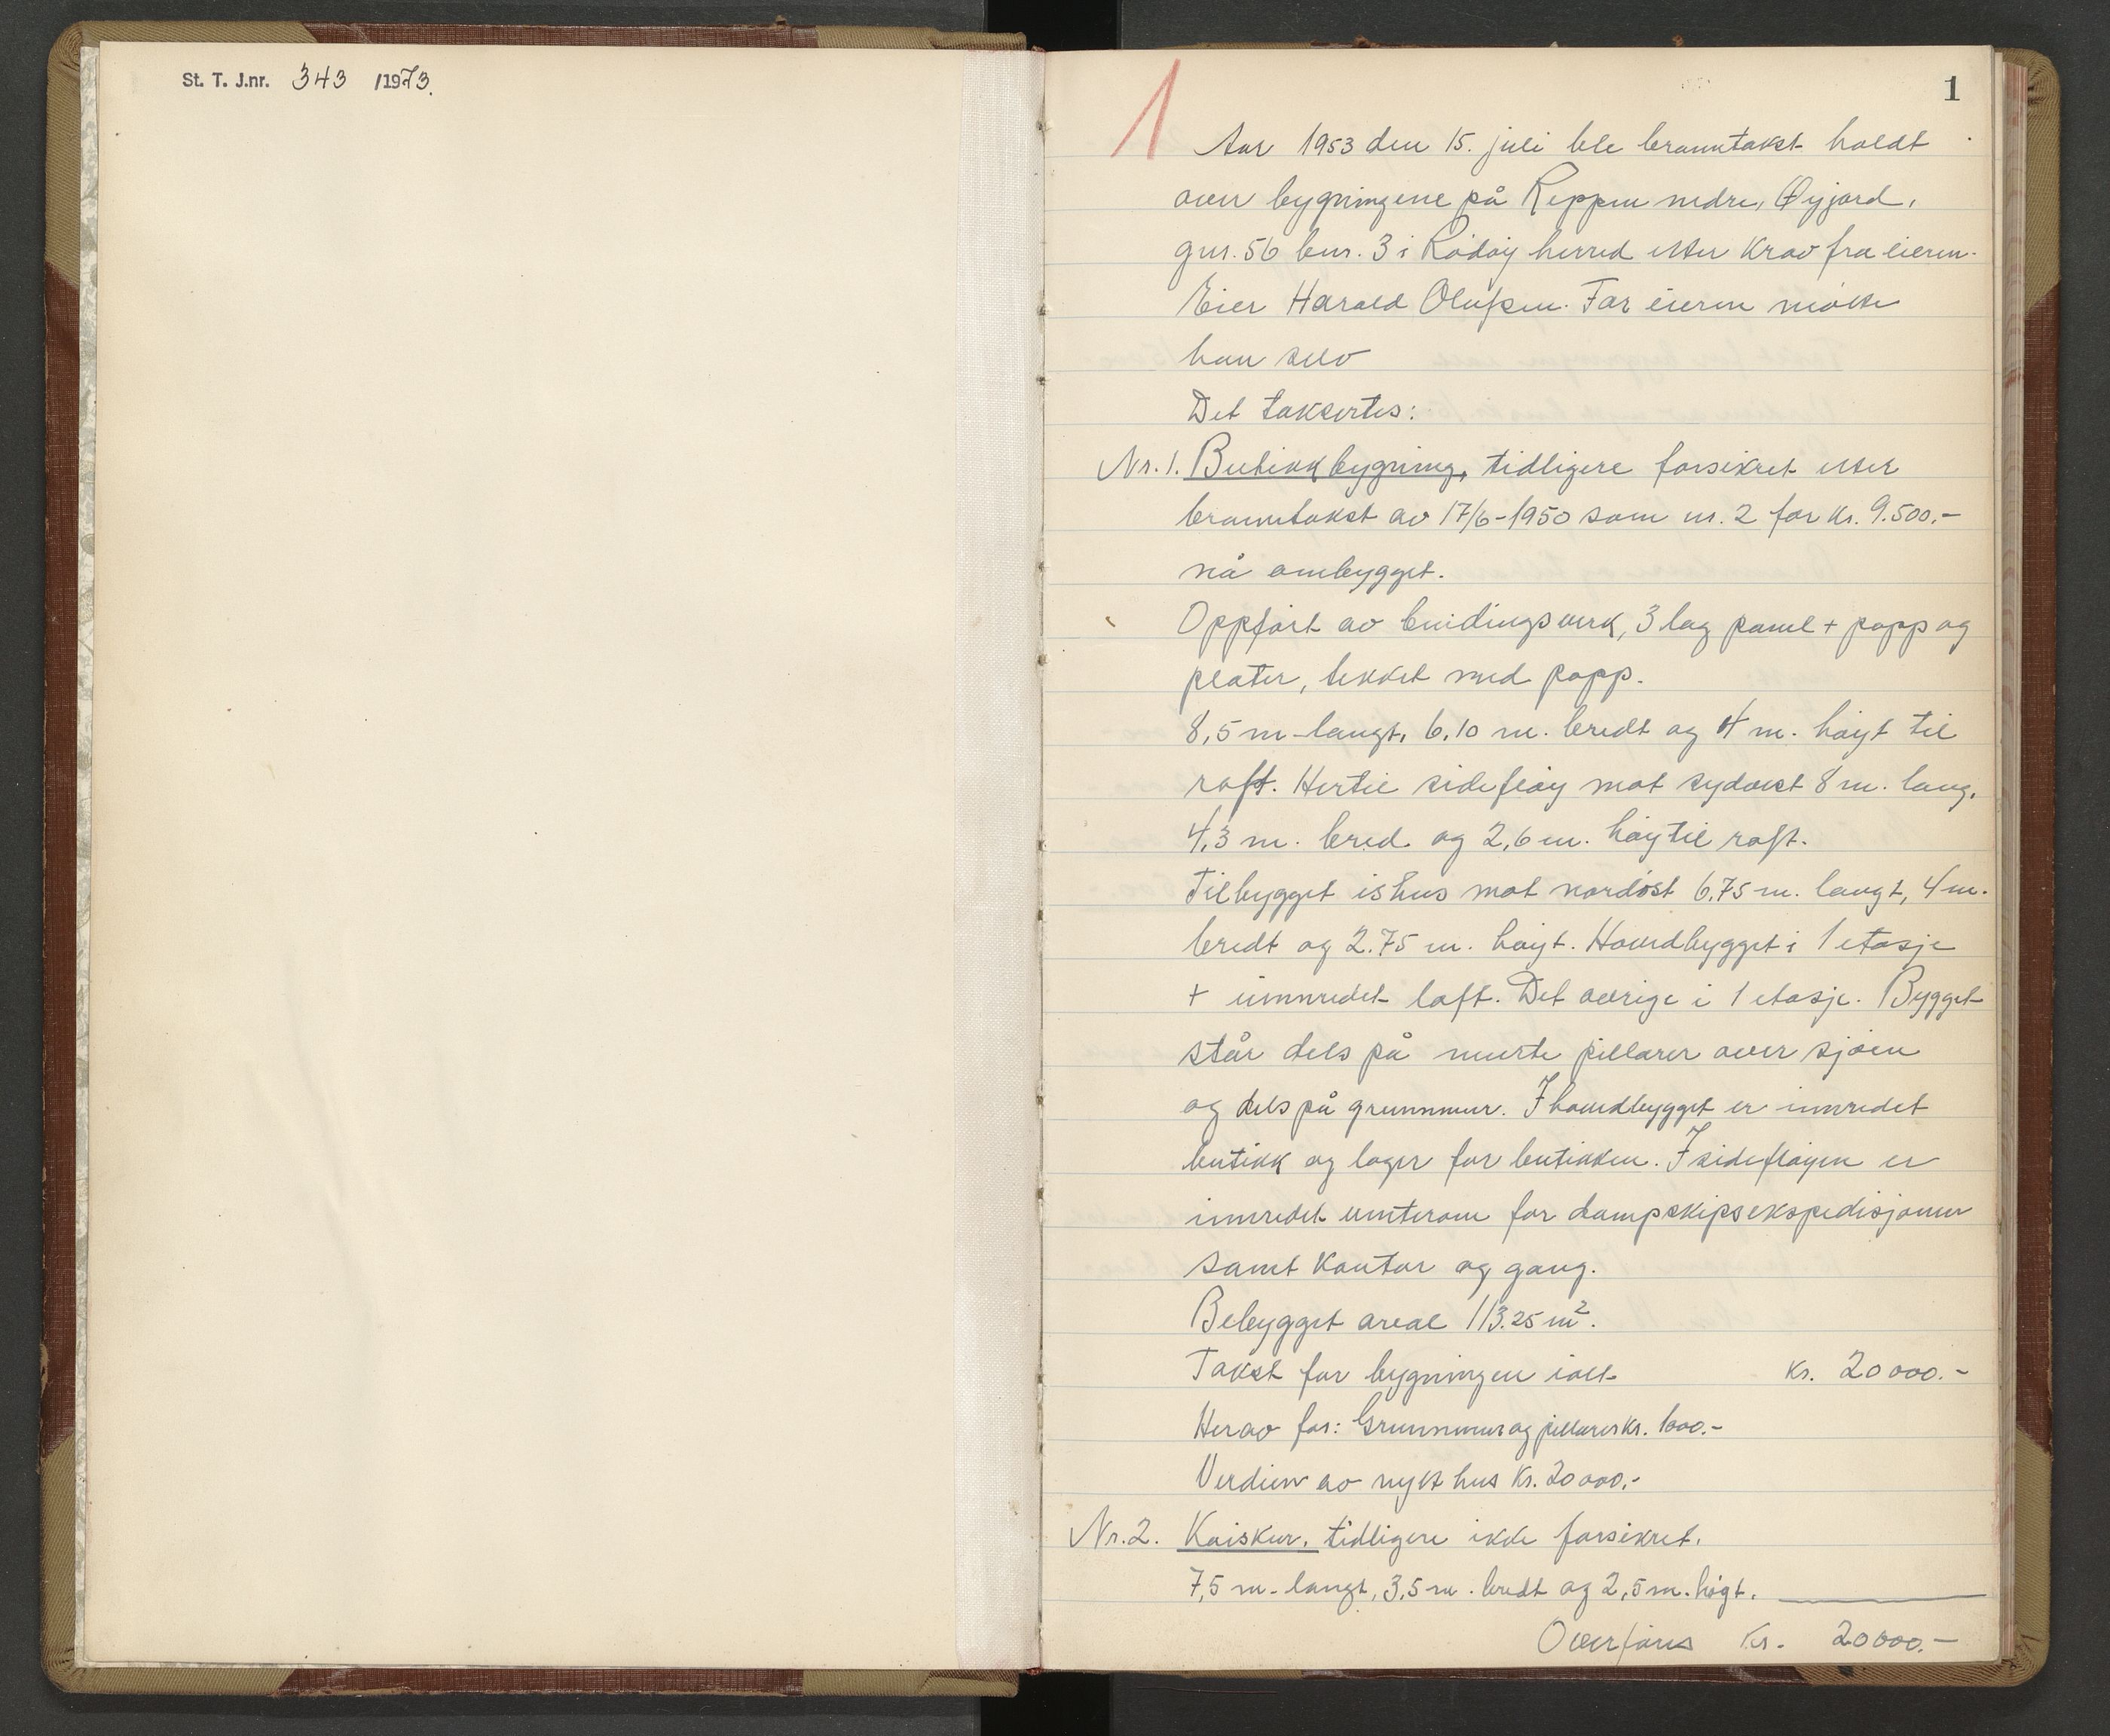 St. T. J.nr. 343 /1973.
1
1
Aar 1953 den 15. juli ble branntakst holdt
over bygningene på Reppen nedre, Øyjord,
gnr. 56 bnr. 3 i Rødøy herred etter krav fra eieren.
Eier Harald Olufsen. For eieren møtte
han selv
Det taksertes:
Nr. 1. Butikkbygning, tidligere forsikret etter
branntakst av 17/6-1950 som nr. 2 for kr. 9.500.-
nå ombygget.
Oppført av bindingsverk, 3 lag panel + papp og
plater, tekket med papp.
8,5 m langt, 6,10 m. bredt og 4 m. høyt til
raft. Hertil sidefløy mot sydvest 8 m. lang,
4,3 m. bred og 2,6 m. høy til raft.
Tilbygget ishus mot nordøst 6,75 m. langt, 4 m.
bredt og 2.75 m. høyt. Hovedbygget i 1 etasje
+ innredet loft. Det øvrige i 1 etasje. Bygget
står dels på murte pillarer over sjøen
og dels på grunnmur. I hovedbygget er innredet
butikk og lager for butikken. I sidefløyen er
innredet venterom for dampskipsekspedisjonen
samt kontor og gang.
Bebygget areal 113.25 m².
Takst for bygningen ialt kr. 20000.-
Herav for: Grunnmur og pillarer kr. 1000.-
Verdien av nytt hus kr. 20000.-
Nr. 2. Kaiskur, tidligere ikke forsikret.
7,5 m. langt, 3,5 m. bredt og 2,5 m. høgt.
Overføres kr. 20000.-